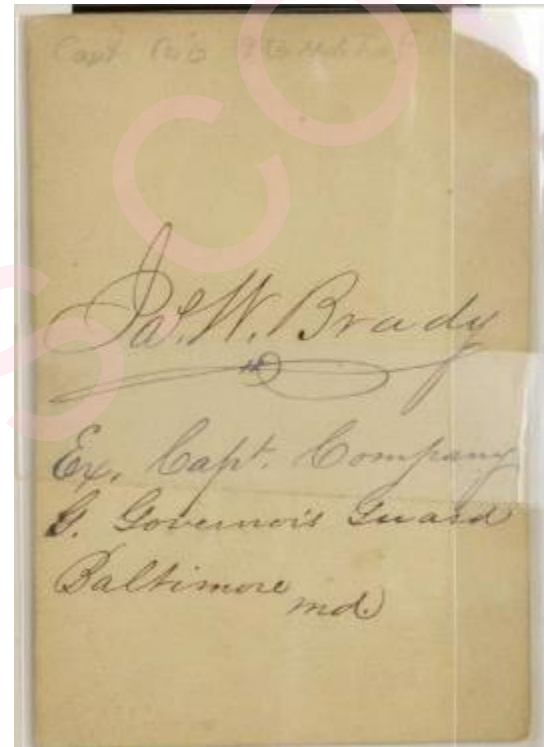 Capt.
Jas. W. Brady
Ex. Capt. Company
G. Governois Guard
Baltimore
md.